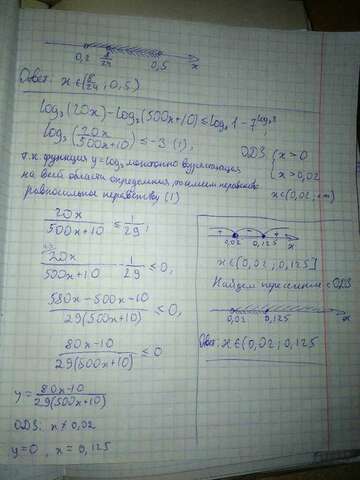 0,2 8/24 0,5 x
Ответ: x ∈ (8/24; 0,5)
log₃(20x) - log₃(500x+10) ≤ log₄1 - 7
log₃(20x/(500x+10)) ≤ -3 (1),
ODS { x > 0
x > 0,02
x ∈ (0,02; +∞)
т.к. функция y = log₃ монотонно возрастающая
на всей области определения, то имеем неравенство
равносильное неравенству (1)
20x/(500x+10) ≤ 1/29;
20x/(500x+10) - 1/29 ≤ 0,
(580x - 500x - 10)/(29(500x+10)) ≤ 0,
(80x-10)/(29(500x+10)) ≤ 0
y = (80x-10)/(29(500x+10))
ODS: x ≠ 0,02
y = 0, x = 0,125
+ - +
0,02 0,125 x
x ∈ (0,02; 0,125]
Найдем пересечение с ODS
0,02 0,125
Ответ: x ∈ (0,02; 0,125